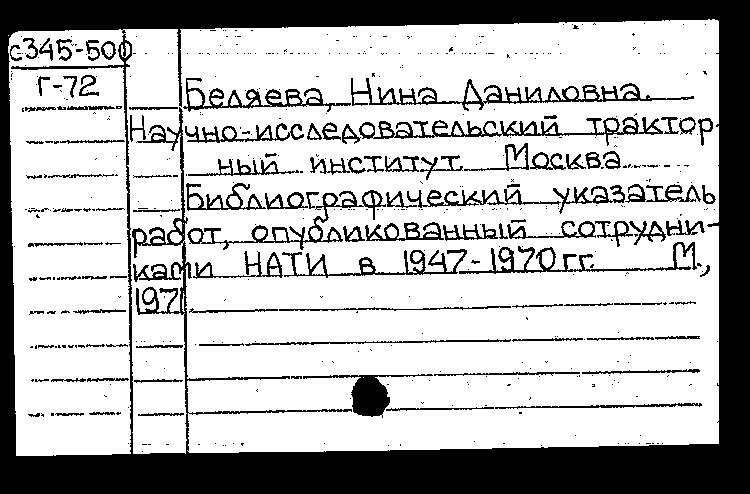 с345-500
Г-72
Беляева, Нина Даниловна.
Научно-исследовательский трактор-
ный институт. Москва
Библиографический указатель
работ, опубликованный сотрудни-
ками НАТИ в 1947-1970гг. М.,
1971